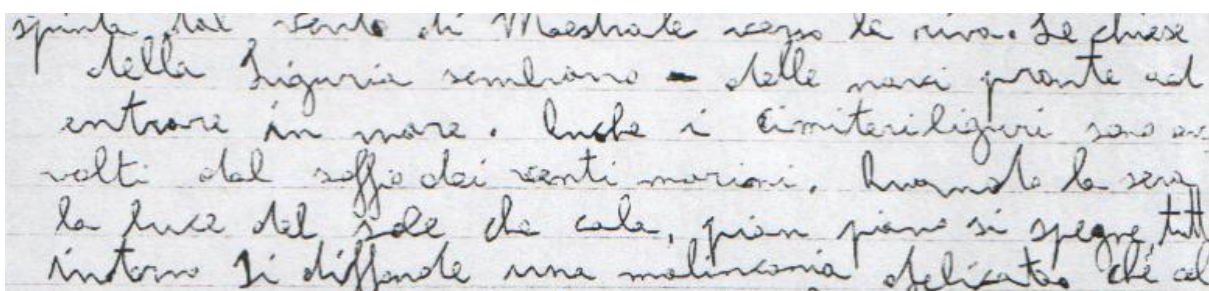 spinta dal vento di Maestrale verso la riva. Le chiese
della Liguria sembrano - delle navi pronte ad
entrare in mare. Anche i cimiteri liguri sono av
volti dal soffio dei venti marini. Quando la sera
la luce del sole che cala, pian piano si spegne, tutt
intorno si diffonde una malinconia delicata che